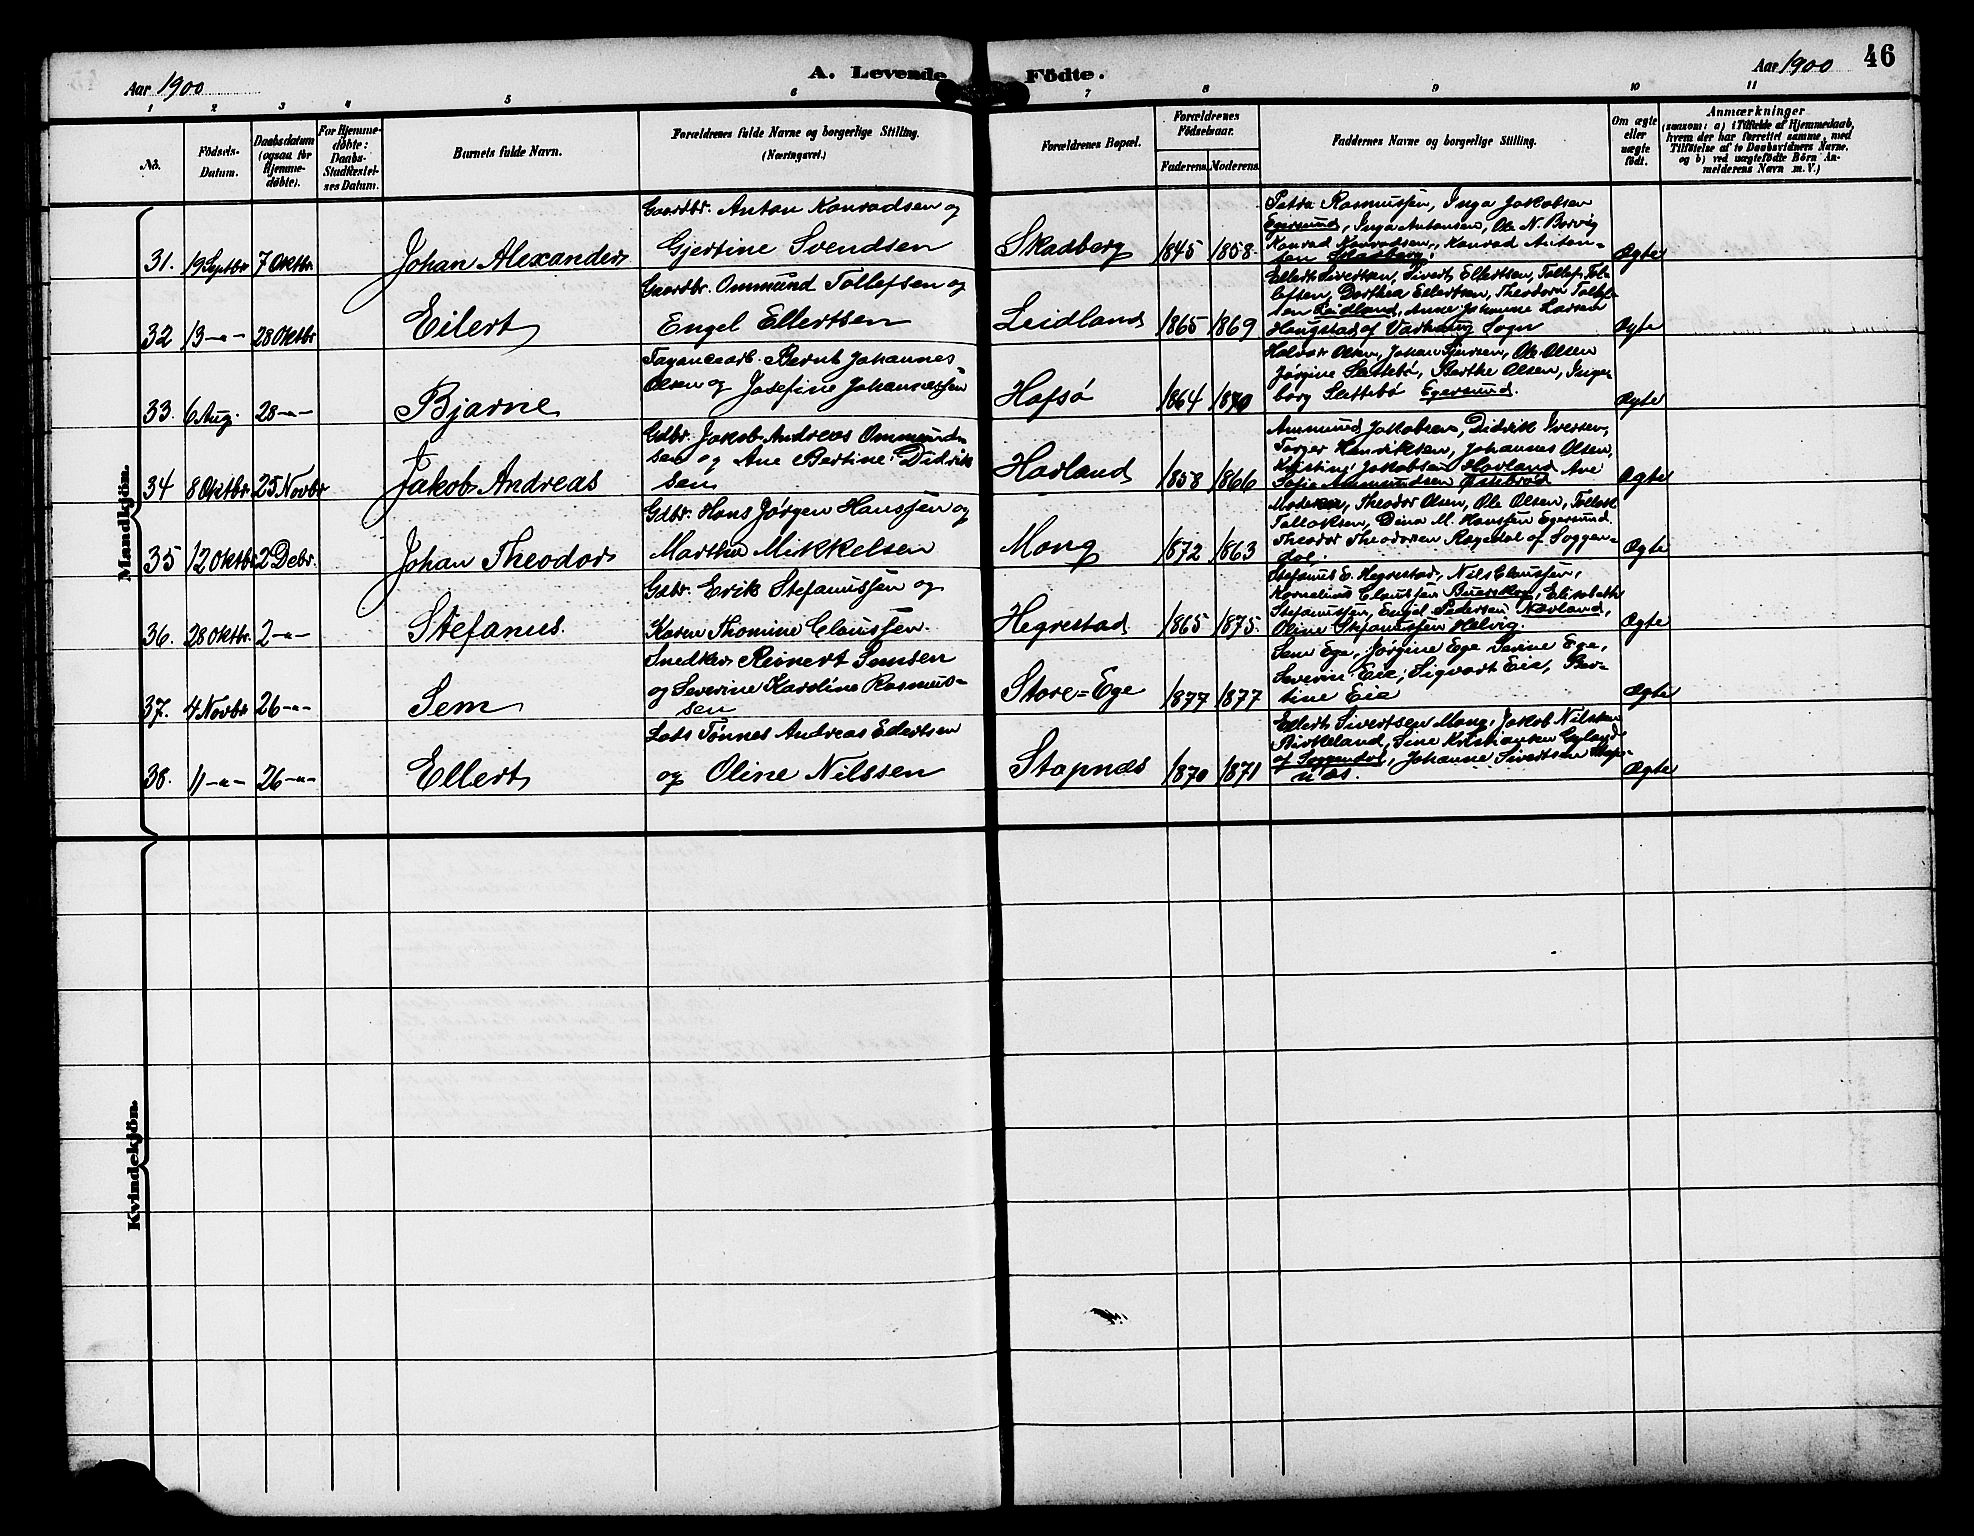 Aar 1900
A. Levende Födte.
Aar 1900
46
1 2 3 4 5 6 7 8 9 10 11
No.
Födsels-Datum.
Daabsdatum (ogsaa for Hjemmedøbte).
For Hjemmedøbte: Daabs-Stadfæstelses Datum.
Barnets fulde Navn.
Forældrenes fulde Navne og borgerlige Stilling.
(Næringsvei.)
Forældrenes Bopæl.
Forældrenes Födselsaar.
Faderens Moderens
Faddernes Navne og borgerlige Stilling.
Om ægte eller uægte födt.
Anmærkninger
(saasom: a) i Tilfælde af Hjemmedaab,
hvem der har forrettet samme, med
Tilföielse af to Daabsvidners Navne.
og b) ved uægtefödte Börn An-
melderens Navn m.V.)
Mandkjön.
31. 19 Septbr 7 Oktbr. Johan Alexander
Gaardbr. Anton Konradsen og
Gjertine Svendsen
Skadberg 1845 1858.
Petra Rasmussen, Inga Jakobsen
Egersund, Inga Antonsen, Ole N. Borvig
Konrad Konradsen, Konrad Anton-
sen Skadberg.
Ægte
32 13 -"- 28 Oktbr Eilert
Gaardbr. Ommund Tollefsen og
Engel Ellertsen
Leidland 1865 1869
Ellert Sivertsen, Sivert Ellertsen, Tollef Tol-
lefsen, Dorthea Ellertsen, Theodora Tollef-
sen Leidland, Anne Johanne Larsen
Haugstad af Varhaug Sogn
Ægte
33. 6 Aug. 28 -"- Bjarne
Bernt Johannes
Olsen og Josefine Johannessen
Hafsø 1864 1870
Halvor Olsen, Johan Sjursen, Ole Olsen
Jørgine Slettebø, Berthe Olsen, Inge-
borg Slettebø Egersund.
Ægte
34 8 Oktbr 25 Novbr Jakob Andreas
Gdbr. Jakob Andreas Ommund-
sen og Ane Bertine Didrik
sen
Havland 1858 1866
Ammund Jakobsen, Didrik Iversen,
Torger Henriksen, Johannes Olsen,
Kristine Jakobsen Hovland Ane
Sofie Ammundsen Østebrød
Ægte
35 12 Oktbr 2 Debr. Johan Theodor
Gdbr. Hans Jørgen Hanssen og
Martha Mikkelsen
Mong 1872 1863
Moderen, Theodor Olsen, Ole Olsen, Tollak
Tollaksen, Dina M. Hanssen Egersund.
Theodor Theodorsen Rægedal af Soggen-
dal.
Ægte
36. 28 Oktbr. 2 -"- Stefanus.
Gdbr. Erik Stefanussen og
Karen Thomine Claussen.
Hegrestad 1865 1875.
Stefanus E. Hegrestad, Nils Claussen,
Kornelius Claussen, Elisabeth
Stefanussen, Engel Pedersen Navland,
Oline Stefanussen Helvig.
Ægte
37. 4 Novbr 26 -"- Sem
Snedker Reinert Semsen
og Severine Karoline Rasmus-
sen
Store=Ege 1877 1877
Sem Ege, Jørgine Ege Serine Ege,
Severin Eie, Sigvart Eie, Ber-
tine Eie
Ægte
38. 11 -"- 26 -"- Ellert
Lods Tønnes Andreas Edertsen
og Oline Nilssen
Stapnæs 1870 1871
Ellert Sivertsen Mong, Jakob Nilssen
Birkeland, Sine Kristiansen Gyland
af Soggendal, Johanne Sivertsen Stap-
næs.
Ægte
Kvindekjön.